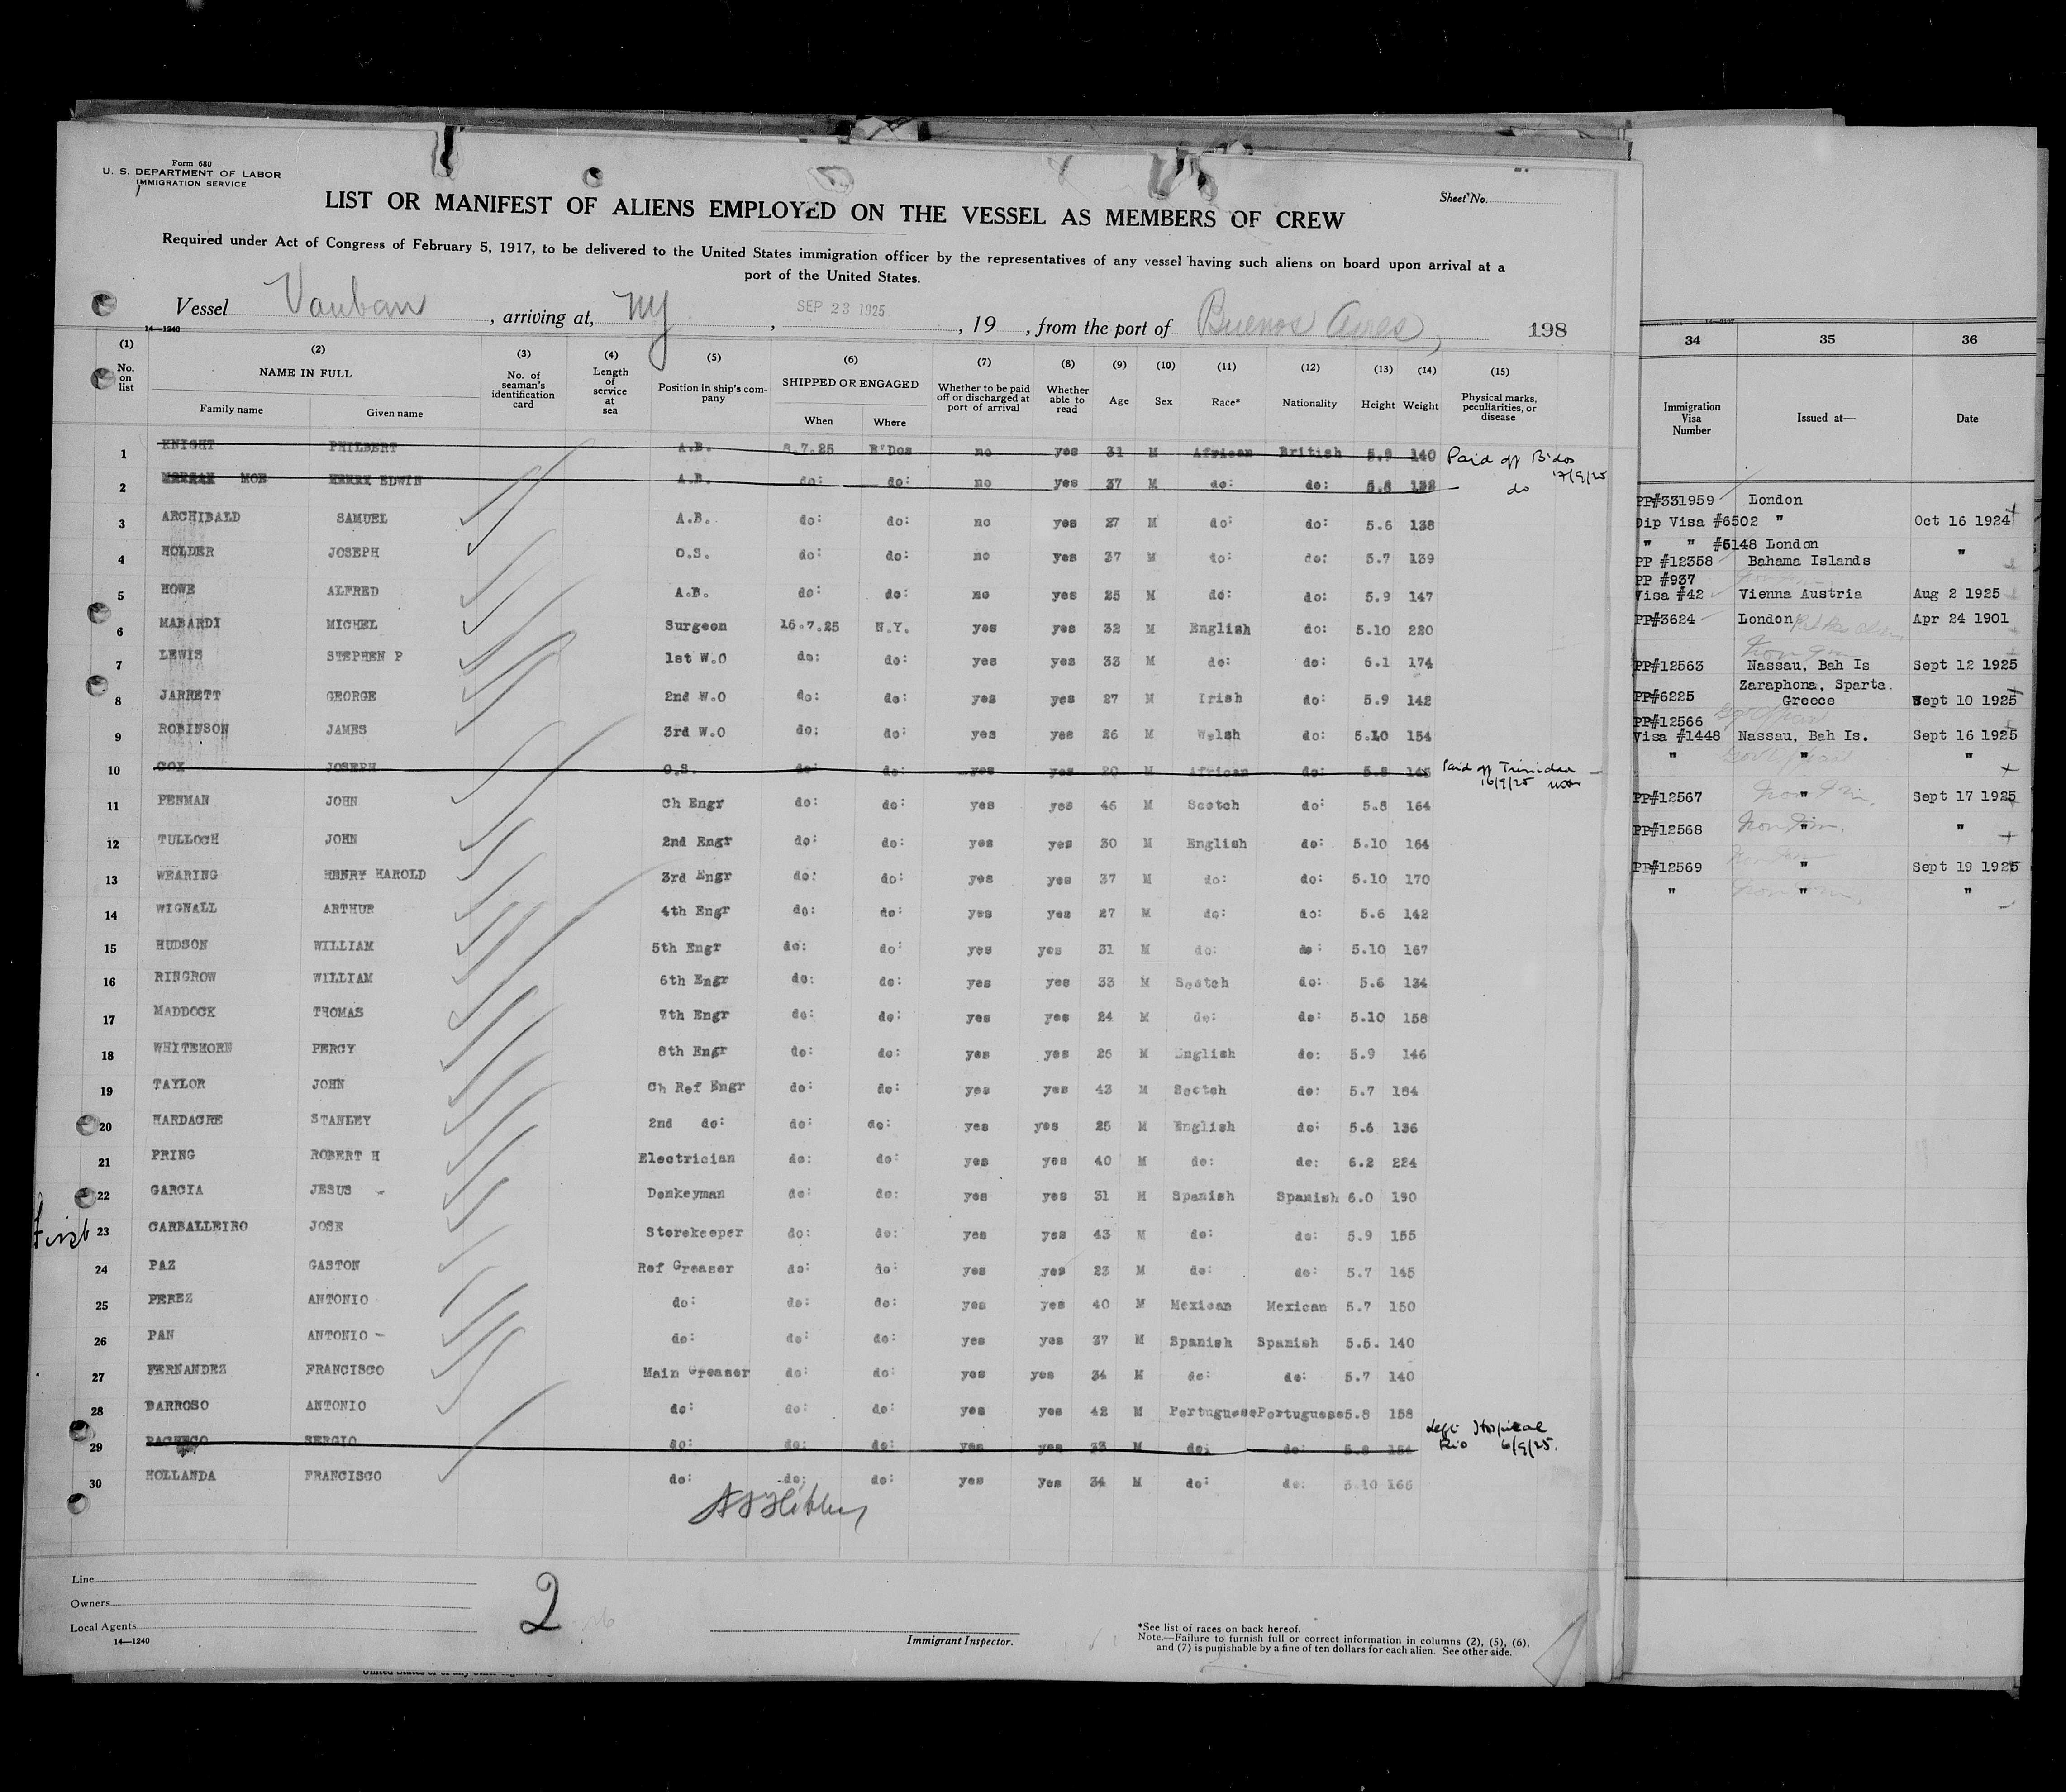 Form 680
U. S. DEPARTMENT OF LABOR
IMMIGRATION SERVICE
Sheet No.
LIST OR MANIFEST OF ALIENS EMPLOYED ON THE VESSEL AS MEMBERS OF CREW
Required under Act of Congress of February 5, 1917, to be delivered to the United States immigration officer by the representatives of any vessel having such aliens on board upon arrival at a
port of the United States.
Vessel Vauban, arriving at, NY, SEP 23 1925, 19 , from the port of Buenos Aires, 198
14—1240
(1) (2) (3) (4) (5) (6) (7) (8) (9) (10) (11) (12) (13) (14) (15)
No. on list NAME IN FULL Family name Given name No. of seaman's identification card Length of service at sea Position in ship's company SHIPPED OR ENGAGED When Where Whether to be paid off or discharged at port of arrival Whether able to read Age Sex Race* Nationality Height Weight Physical marks, peculiarities, or disease
1 KNIGHT PHILBERT A.B. 8.7.25 B'Dos no yes 31 M African British 5.9 140 Paid off B'dos 17/9/25
2 MOE HENRY EDWIN A.B. do: do: no yes 37 M do: do: 5.8 132 do
3 ARCHIBALD SAMUEL A.B. do: do: no yes 27 M do: do: 5.6 138
4 HOLDER JOSEPH O.S. do: do: no yes 37 M do: do: 5.7 139
5 HOWE ALFRED A.B. do: do: no yes 25 M do: do: 5.9 147
6 MABARDI MICHEL Surgeon 16.7.25 N.Y. yes yes 32 M English do: 5.10 220
7 LEWIS STEPHEN P 1st W.O do: do: yes yes 33 M do: do: 6.1 174
8 JARRETT GEORGE 2nd W.O do: do: yes yes 27 M Irish do: 5.9 142
9 ROBINSON JAMES 3rd W.O do: do: yes yes 26 M Welsh do: 5.10 154
10 COX JOSEPH O.S. do: do: yes yes 20 M African do: 5.8 145 Paid off Trinidad 16/9/25
11 PENMAN JOHN Ch Engr do: do: yes yes 46 M Scotch do: 5.8 164
12 TULLOCH JOHN 2nd Engr do: do: yes yes 30 M English do: 5.10 164
13 WEARING HENRY HAROLD 3rd Engr do: do: yes yes 37 M do: do: 5.10 170
14 WIGNALL ARTHUR 4th Engr do: do: yes yes 27 M do: do: 5.6 142
15 HUDSON WILLIAM 5th Engr do: do: yes yes 31 M do: do: 5.10 167
16 RINGROW WILLIAM 6th Engr do: do: yes yes 33 M Scotch do: 5.6 134
17 MADDOCK THOMAS 7th Engr do: do: yes yes 24 M do: do: 5.10 158
18 WHITEHORN PERCY 8th Engr do: do: yes yes 26 M English do: 5.9 146
19 TAYLOR JOHN Ch Ref Engr do: do: yes yes 43 M Scotch do: 5.7 184
20 HARDACRE STANLEY 2nd do: do: do: yes yes 25 M English do: 5.6 136
21 PRING ROBERT H Electrician do: do: yes yes 40 M do: do: 6.2 224
22 GARCIA JESUS Donkeyman do: do: yes yes 31 M Spanish Spanish 6.0 190
First 23 CARBALLEIRO JOSE Storekeeper do: do: yes yes 43 M do: do: 5.9 155
24 PAZ GASTON Ref Greaser do: do: yes yes 23 M do: do: 5.7 145
25 PEREZ ANTONIO do: do: do: yes yes 40 M Mexican Mexican 5.7 150
26 PAN ANTONIO do: do: do: yes yes 37 M Spanish Spanish 5.5. 140
27 FERNANDEZ FRANCISCO Main Greaser do: do: yes yes 34 M do: do: 5.7 140
28 BARROSO ANTONIO do: do: do: yes yes 42 M Portuguese Portuguese 5.8 158
29 PACHECO SERGIO do: do: do: yes yes 33 M do: do: 5.8 154 Left Hospital Rio 6/9/25.
30 HOLLANDA FRANCISCO do: do: do: yes yes 34 M do: do: 5.10 166
Line
Owners
Local Agents
14—1240
2
Immigrant Inspector.
*See list of races on back hereof.
Note.—Failure to furnish full or correct information in columns (2), (5), (6),
and (7) is punishable by a fine of ten dollars for each alien. See other side.
34 35 36
Immigration Visa Number Issued at— Date
PP#331959 London
Dip Visa #6502 " Oct 16 1924
" " #6148 London "
PP #12358 Bahama Islands
PP #937
Visa #42 Vienna Austria Aug 2 1925
PP#3624 London Apr 24 1901
PP#12563 Nassau, Bah Is Sept 12 1925
Zaraphona, Sparta.
PP#6225 Greece Sept 10 1925
PP#12566
Visa #1448 Nassau, Bah Is. Sept 16 1925
" " "
PP#12567 " Sept 17 1925
PP#12568 " "
PP#12569 " Sept 19 1925
" " "